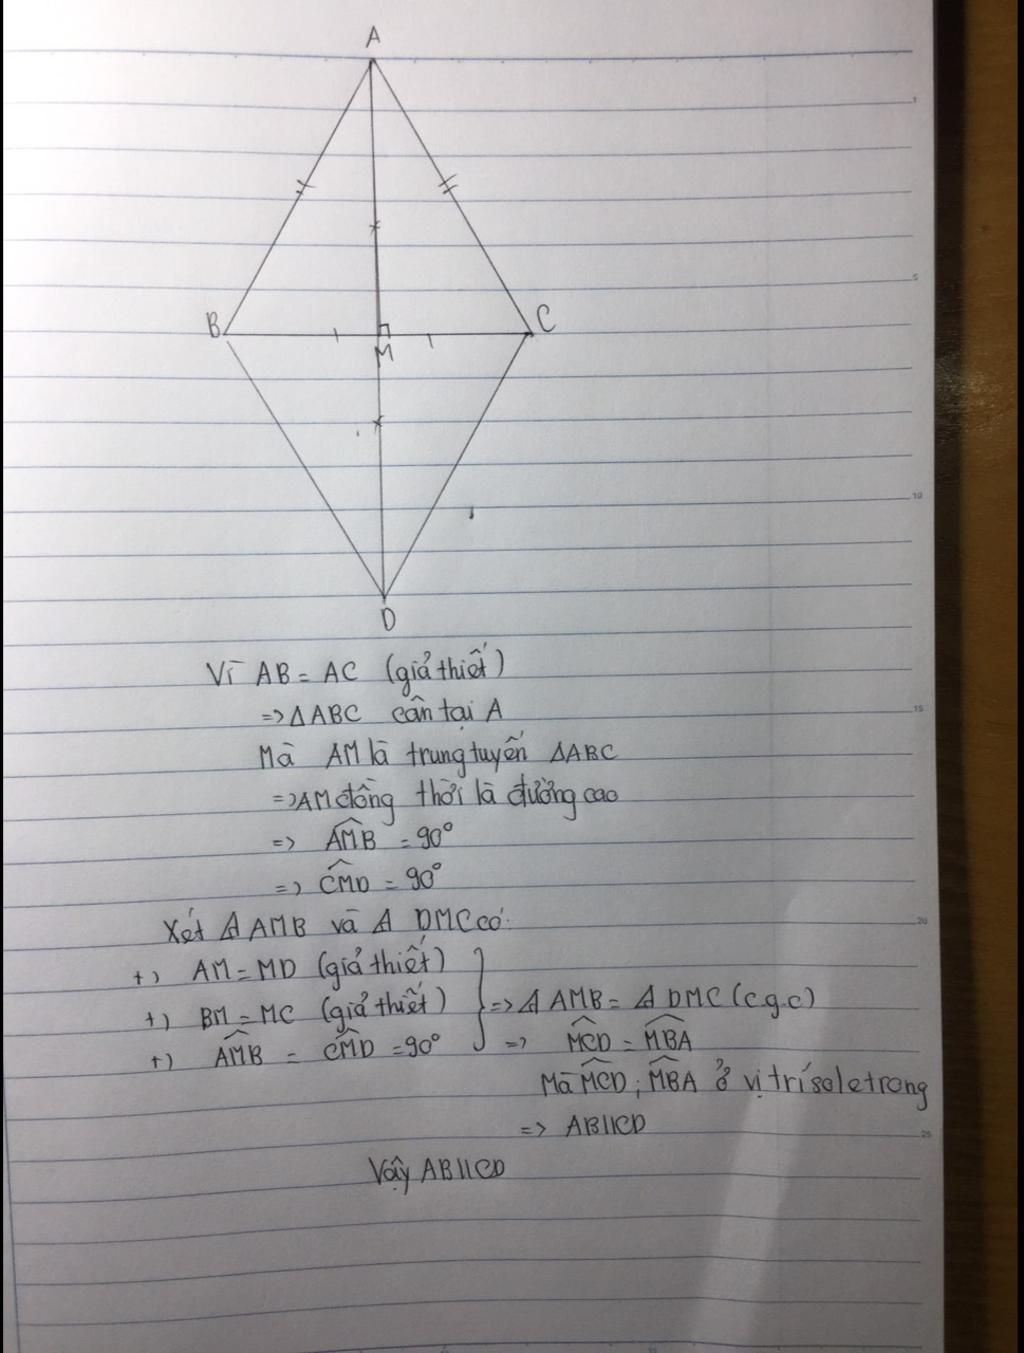 A
B
C
M
D
Vì AB = AC (giả thiết)
=> ΔABC cân tại A
Mà AM là trung tuyến ΔABC
=> AM đồng thời là đường cao
=> \widehat{AMB} = 90°
=> \widehat{CMD} = 90°
Xét Δ AMB và Δ DMC có:
+) AM = MD (giả thiết)
+) BM = MC (giả thiết) } => Δ AMB = Δ DMC (c.g.c)
+) \widehat{AMB} = \widehat{CMD} = 90° => \widehat{MCD} = \widehat{MBA}
Mà \widehat{MCD}; \widehat{MBA} ở vị trí so le trong
=> AB // CD
Vậy AB // CD
1
5
10
15
20
25